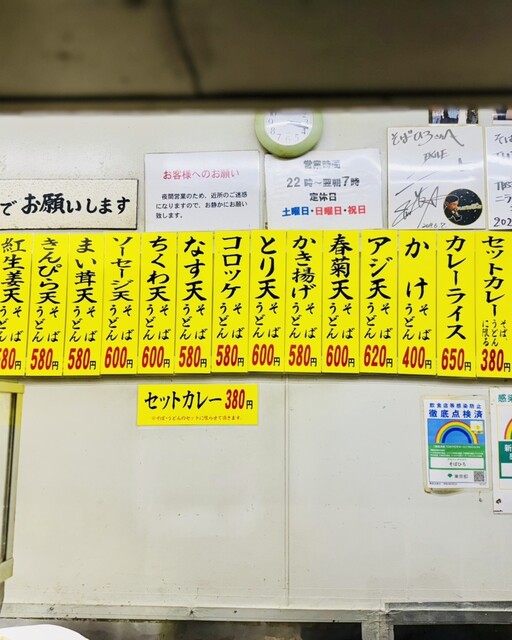 でお願いします
お客様へのお願い
夜間営業のため、近所のご迷惑
になりますので、お静かにお願い
致します。
営業時間
22時～翌朝7時
定休日
土曜日・日曜日・祝日
そばひろさん江
EXILE
セットカレー そば うどん に限る 380円
カレーライス 650円
かけ そば うどん 400円
アジ天 そば うどん 620円
春菊天 そば うどん 600円
かき揚げ そば うどん 580円
とり天 そば うどん 600円
コロッケ そば うどん 580円
なす天 そば うどん 580円
ちくわ天 そば うどん 600円
ソーセージ天 そば うどん 600円
まい茸天 そば うどん 580円
きんぴら天 そば うどん 580円
紅生姜天 そば うどん 580円
セットカレー 380円
飲食店等感染防止
徹底点検済
そばひろ
東京都
感染